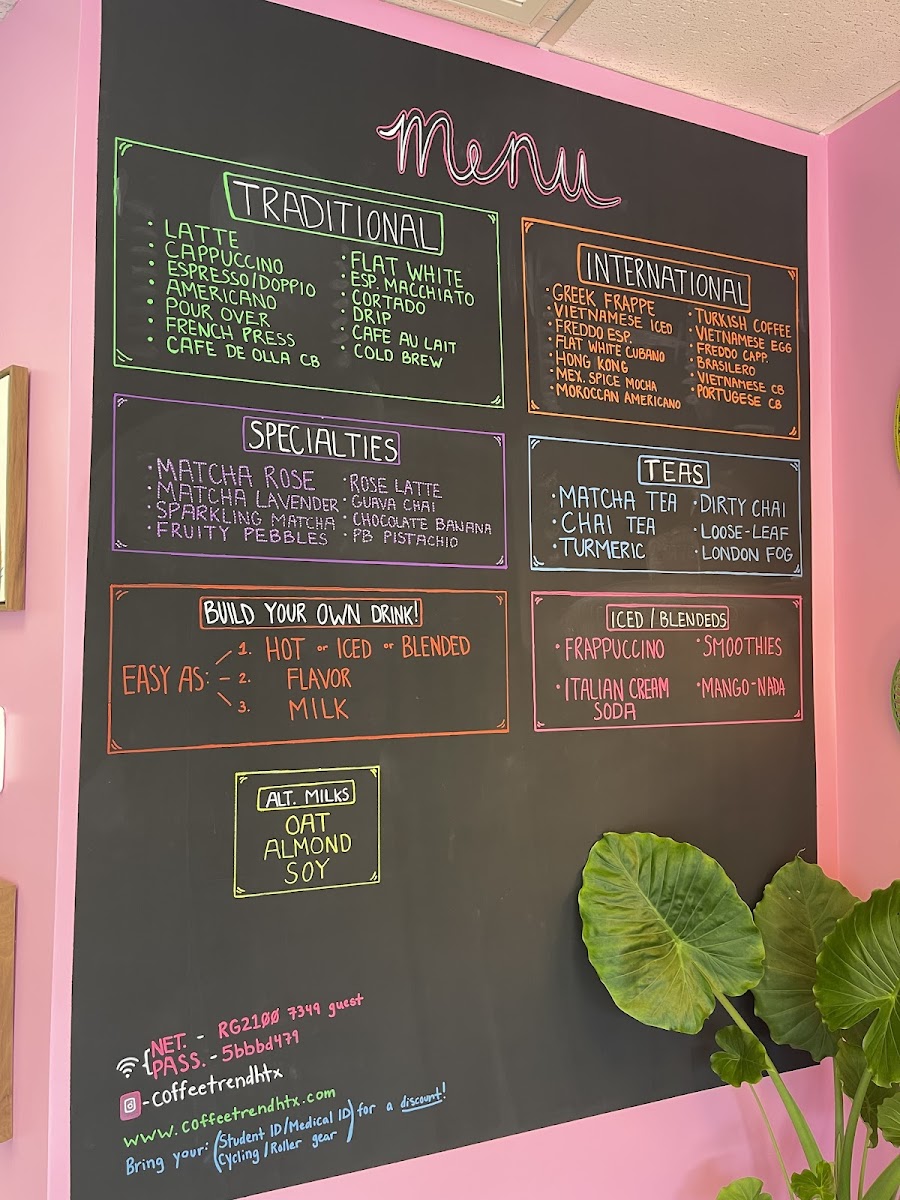 menu
TRADITIONAL
• LATTE
• CAPPUCCINO
• ESPRESSO/DOPPIO
• AMERICANO
• POUR OVER
• FRENCH PRESS
• CAFE DE OLLA CB
• FLAT WHITE
• ESP. MACCHIATO
• CORTADO
• DRIP
• CAFE AU LAIT
• COLD BREW
INTERNATIONAL
• GREEK FRAPPE
• VIETNAMESE ICED
• FREDDO ESP.
• FLAT WHITE CUBANO
• HONG KONG
• MEX. SPICE MOCHA
• MOROCCAN AMERICANO
• TURKISH COFFEE
• VIETNAMESE EGG
• FREDDO CAPP.
• BRASILERO
• VIETNAMESE CB
• PORTUGESE CB
SPECIALTIES
• MATCHA ROSE
• MATCHA LAVENDER
• SPARKLING MATCHA
• FRUITY PEBBLES
• ROSE LATTE
• GUAVA CHAI
• CHOCOLATE BANANA
• PB PISTACHIO
TEAS
• MATCHA TEA
• CHAI TEA
• TURMERIC
• DIRTY CHAI
• LOOSE-LEAF
• LONDON FOG
BUILD YOUR OWN DRINK!
EASY AS:
1. HOT or ICED or BLENDED
2. FLAVOR
3. MILK
ICED / BLENDEDS
• FRAPPUCCINO
• ITALIAN CREAM
SODA
• SMOOTHIES
• MANGO-NADA
ALT. MILKS
OAT
ALMOND
SOY
NET. - RG2100 7349 guest
PASS. - 5bbbd479
-coffeetrendhtx
www.coffeetrendhtx.com
Bring your: (Student ID/Medical ID
Cycling/Roller gear) for a discount!